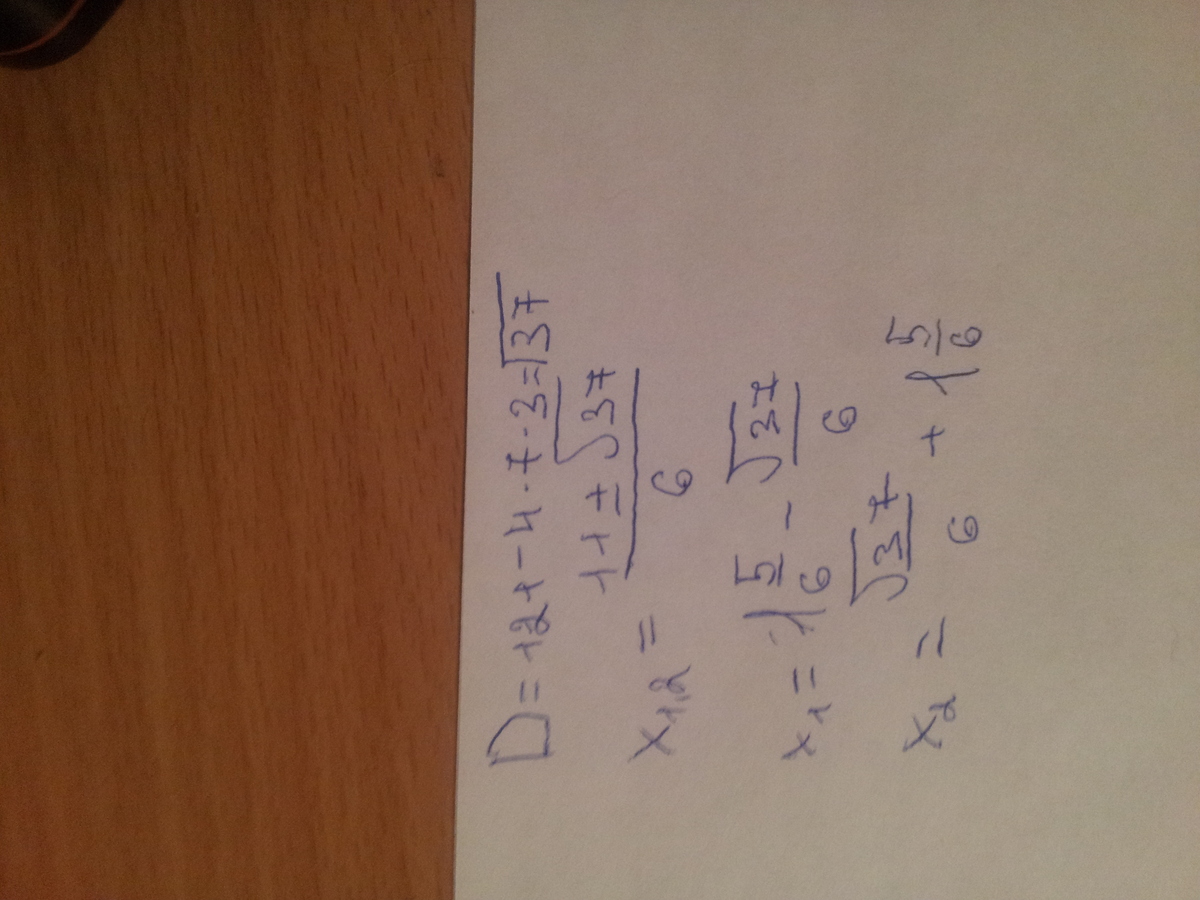 D = 121 - 4 · 7 · 3 = √37
x₁,₂ = (11 ± √37)/6
x₁ = 1 5/6 - √37/6
x₂ = √37/6 + 1 5/6